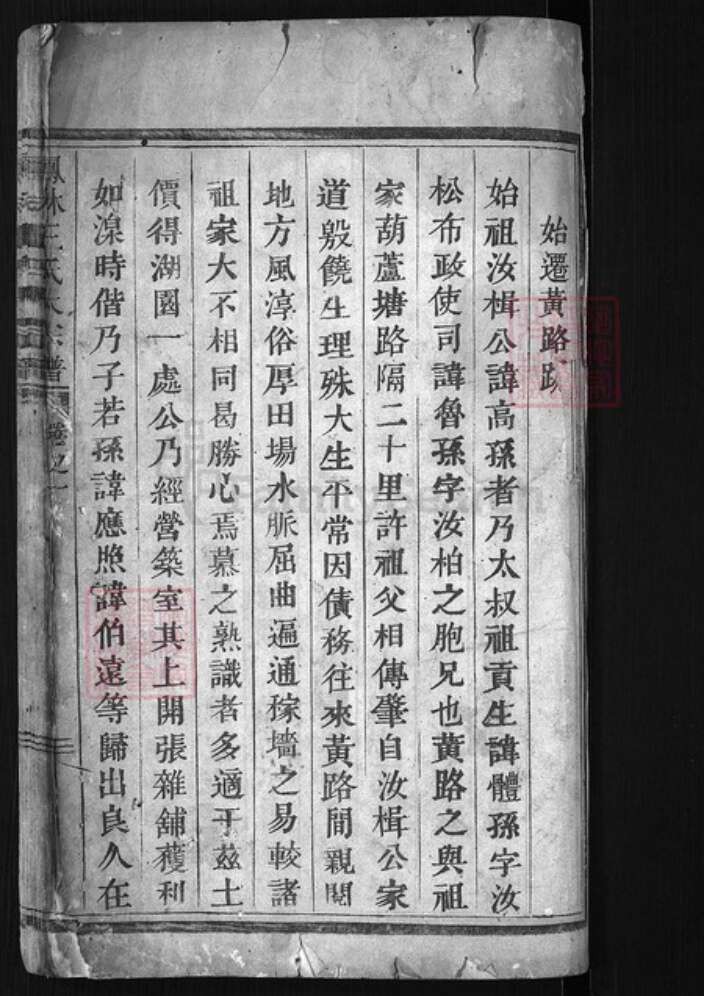 始遷黃路跡
始祖汝楫公諱高孫者乃太叔祖貢生諱體孫字汝
松布政使司諱魯孫字汝柏之胞兄也黃路之與祖
家葫蘆塘路隔二十里許祖父相傳肇自汝楫公家
道殷饒生理殊大生平常因債務往來黃路間親閱
地方風淳俗厚田場水脈屈曲遍通稼墻之易較諸
祖家大不相同曷勝心焉慕之熟識者多適于茲土
價得湖園一處公乃經營築室其上開張雜舖獲利
如湶時偕乃子若孫諱應熈諱伯遠等歸出良久在
鳳林王氏大宗譜 卷之一